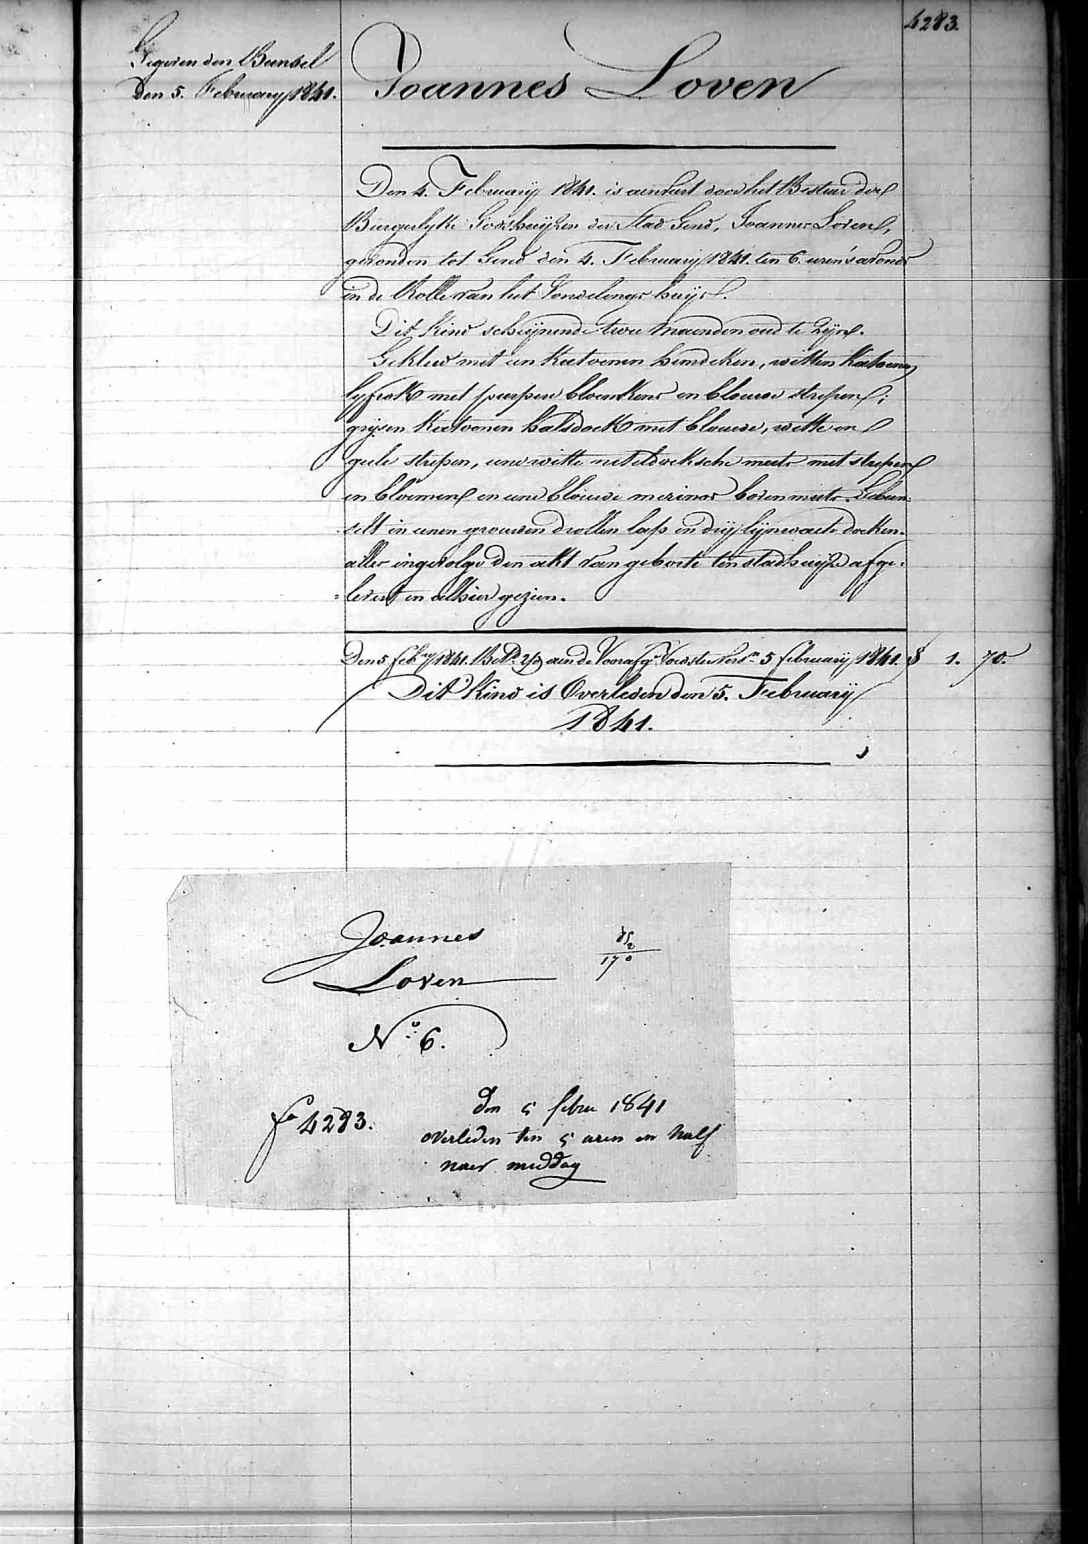 4283.
Gegeven den Bunsel
Den 5. February 1841.
Joannes Loven
Den 4. February 1841. is aenveert door het Bestuer der
Burgerlyke Godshuyzen der Stad Gend, Joannes Loven,
gevonden tot Gend den 4. February 1841. ten 6. uren s'avonds
in de Rolle van het Vondelings huys.
Dit kind schynende twee maenden oud te zyn.
Gekleed met een Kattoenen hemdeken, witten Kattoenen
lyfrok met purpere bloemkens en blauwe strepen;
grysen Kattoenen halsdoek met blauwe, witte en
geele strepen, eene witte neteldoeksche muts met strepen
en bloemen en eene blauwe merinos bovenmuts. Gebun-
selt in eenen grauwen drollen lap en dry lynwaete doeken.
alles ingevolge den akt van geboorte ten stadhuyze afge-
=levert en alhier gezien.
Den 5 feb.ry 1841. aen de Voorsz. Voedster 5 february 1841. $ 1. 70.
Dit kind is Overleden den 5. February
1841.
Joannes
Loven
170
N.o 6.
fo 4283.
den 5 febru 1841
overleden ten 5 uren en half
naer middag